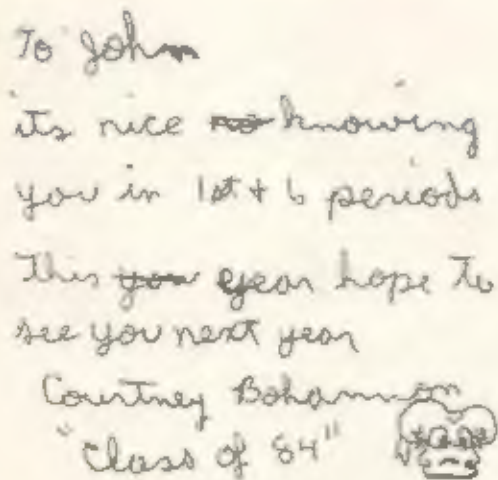 To John
its nice knowing
you in 1st + 6 periods
This year hope to
see you next year
Courtney Bohannon
"Class of 84"